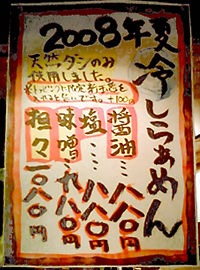 2008年夏
冷しらぁめん
天然ダシのみ
使用しました。
+100円
醤油…八八〇
塩……八八〇
味噌…九八〇
担々…一〇八〇